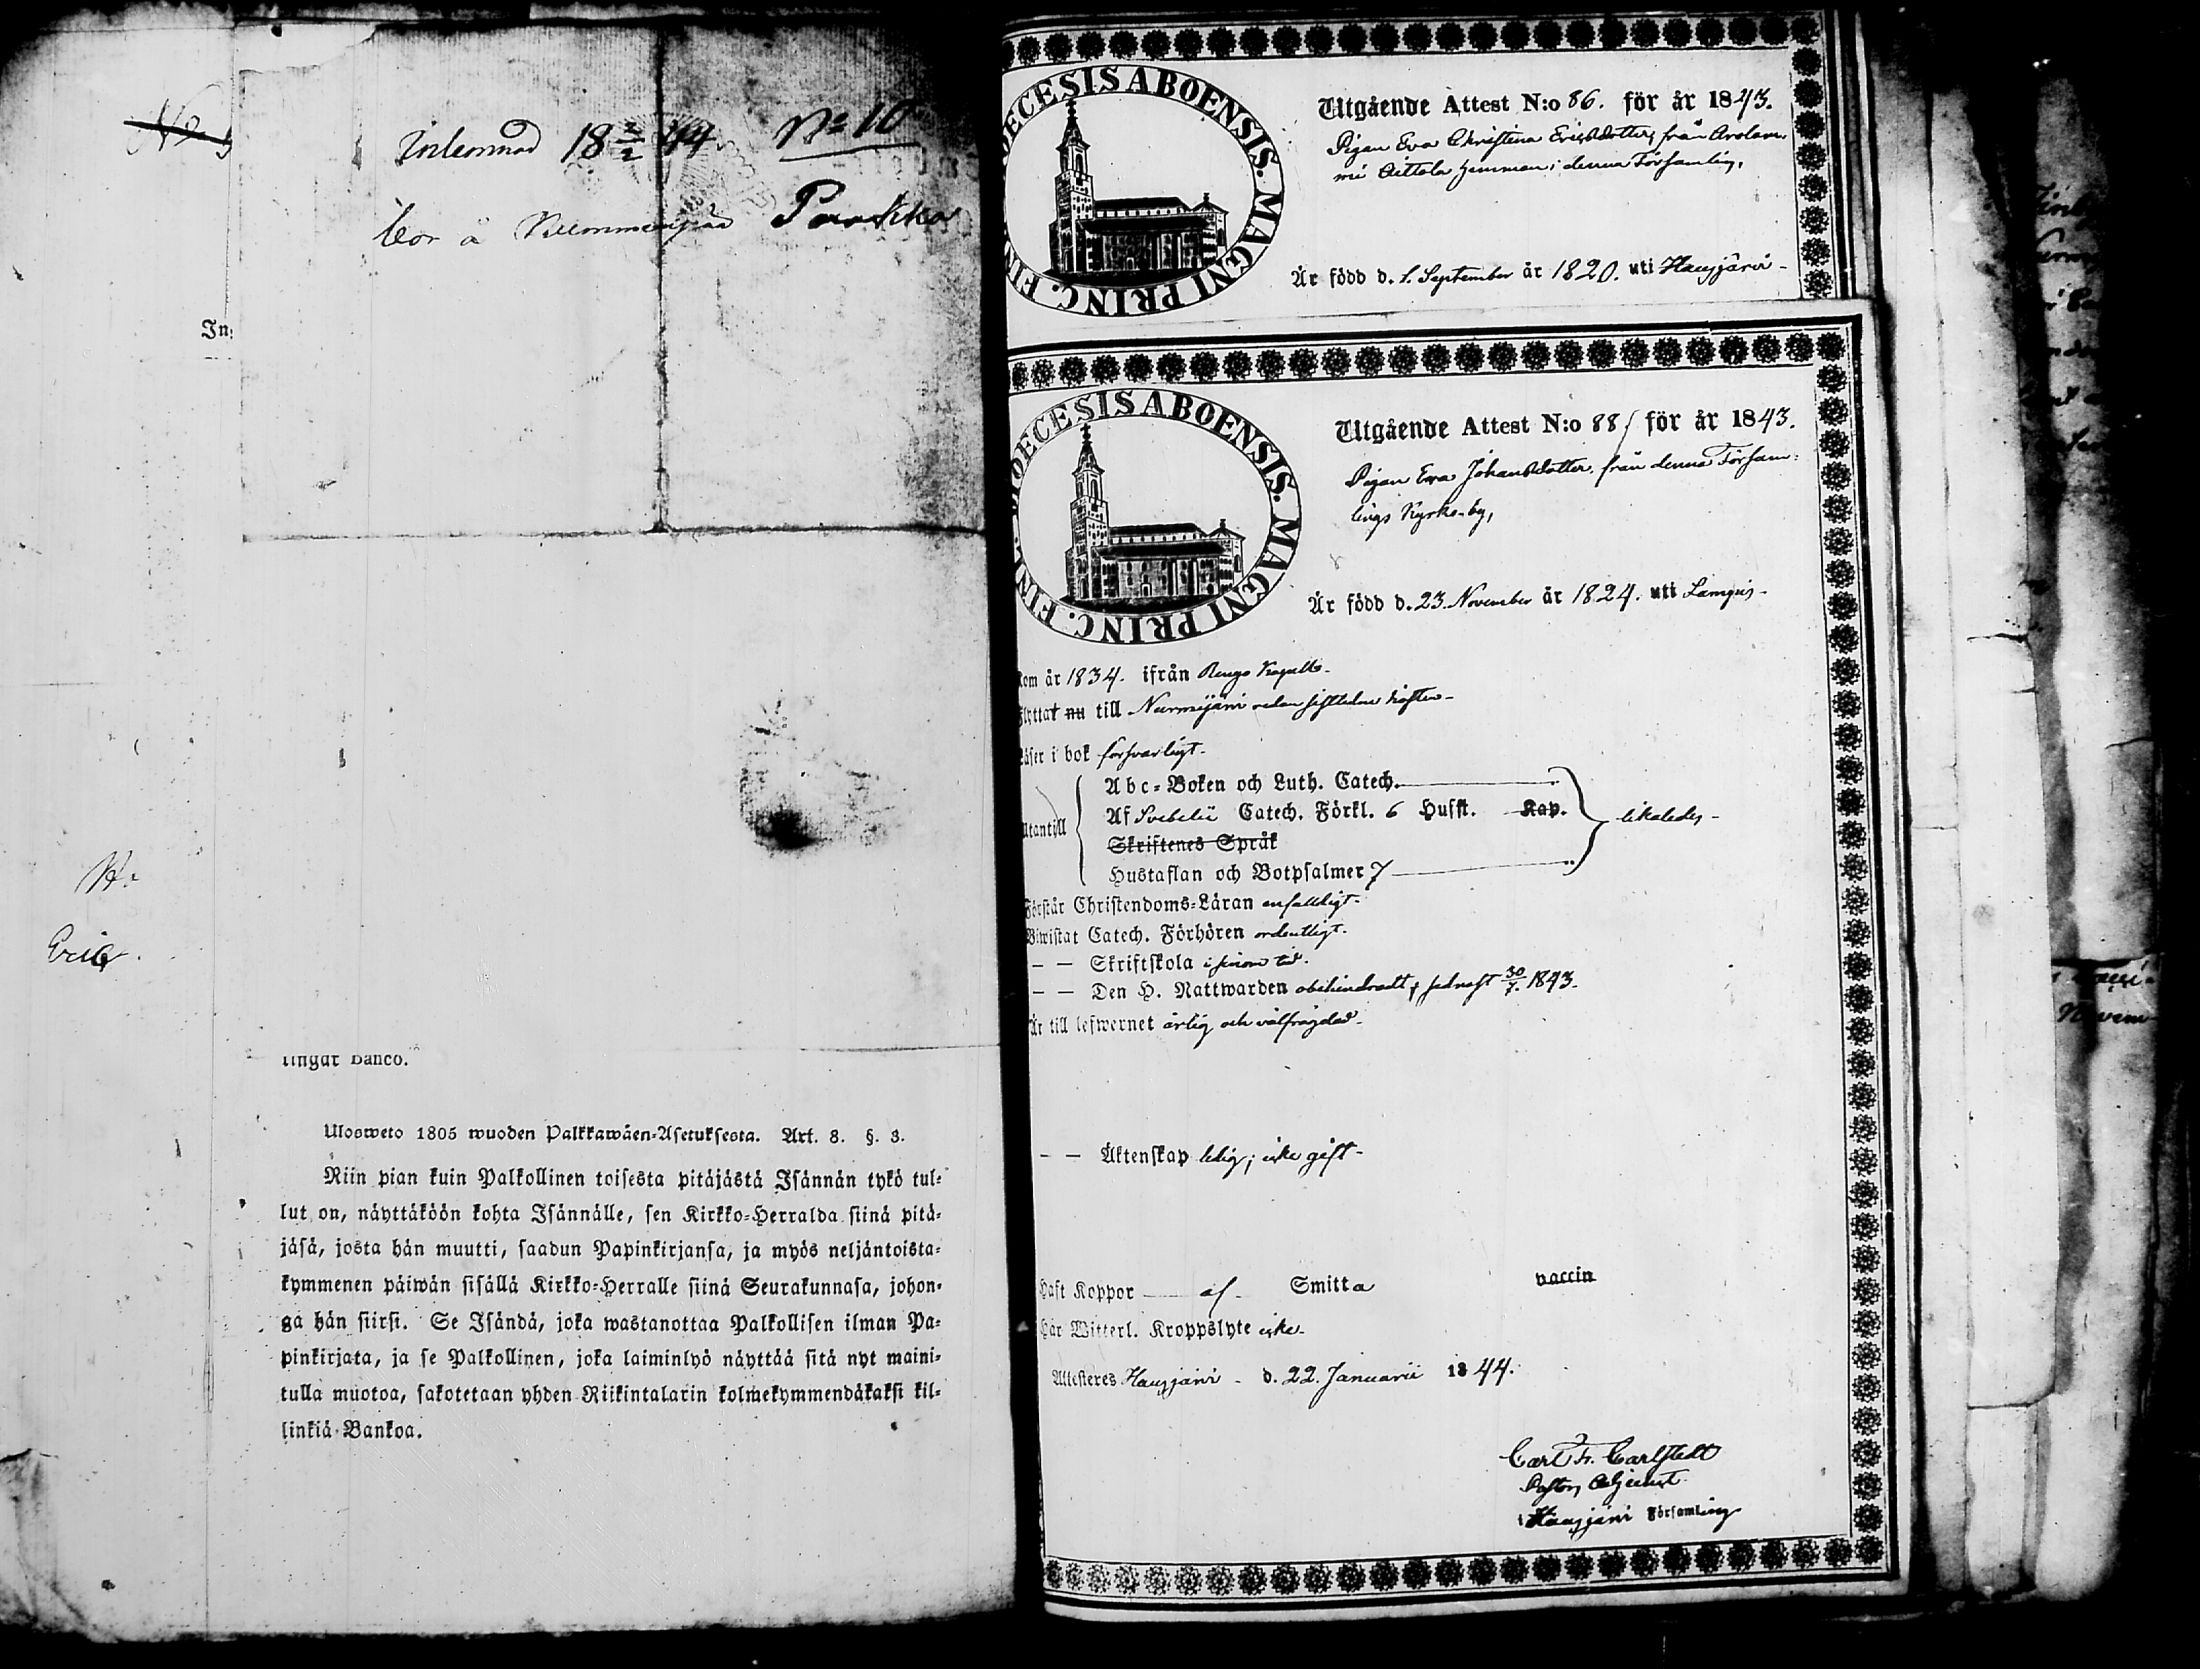 Inkommod 18 2/2 44. No 10
bor à Parkko
In
No
Eric
lingar Banco.
Ulosweto 1805 wuoden Palkkawäen-Asetuksesta. Art. 8. §. 3.
Niin pian kuin Palkollinen toisesta pitäjästä Isännän tykö tul-
lut on, näyttäköön kohta Isännälle, sen Kirkko-Herralda siinä pitä-
jäsä, josta hän muutti, saadun Papinkirjansa, ja myös neljäntoista-
kymmenen päiwän sisällä Kirkko-Herralle siinä Seurakunnasa, johon-
ga hän siirsi. Se Isändä, joka wastanottaa Palkollisen ilman Pa-
pinkirjata, ja se Palkollinen, joka laiminlyö näyttää sitä nyt maini-
tulla muotoa, sakotetaan yhden Riikintalarin kolmekymmendäkaksi kil-
linkiä Bankoa.
DIOECESIS ABOENSIS. MAGNI PRINC. FIN
Utgående Attest N:o 86. för år 1843.
Pigan Eva Christina Ericsdotter, från Arolam-
mi Aittola hemman i denna Församling,
Är född d. 1. September år 1820. uti Hausjärvi -
DIOECESIS ABOENSIS. MAGNI PRINC. FINL
Utgående Attest N:o 88 för år 1843.
Pigan Eva Johansdotter, från denna Försam-
lings Kyrko-by,
Är född d. 23. November år 1824. uti Lampis -
Kom år 1834. ifrån Rengo Kapell -
Flyttat nu till Nurmijärvi redan sistledne höst -
Läser i bok försvarligt -
Utantill
Abc-Boken och Luth. Catech.
Af Svebelii Catech. Förkl. 6 Hufst. Kap. likaledes -
Skriftenes Språk
Hustaflan och Botpsalmer 7
Förstår Christendoms-Läran enfaldigt -
Biwistat Catech. Förhören ordentligt -
- - Skriftskola i sinom tid.
- - Den H. Nattwarden obehindradt, sednast 30/7. 1843.
Är till lefwernet ärlig och välfrägdad -
- - Äktenskap ledig; icke gift -
Haft Koppor af Smitta vaccin
Har Witterl. Kroppslyte icke -
Attesteres Hausjärvi - d. 22. Januarii 1844.
Carl Fr. Carlstedt
Pastors Adjunct
i Hausjärvi Församling